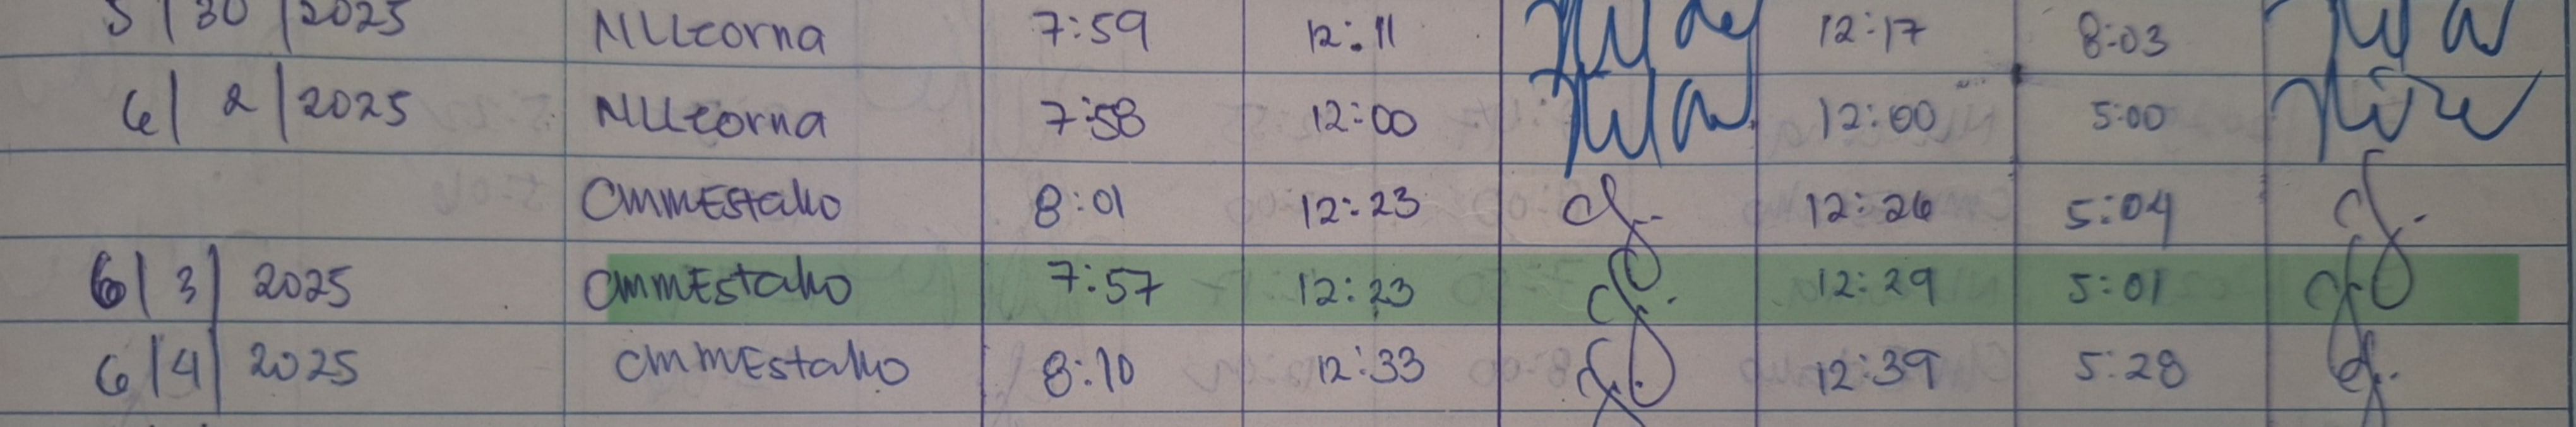 5/30/2025 7:59 12:11 12:17 8:03
6/2/2025 7:58 12:00 12:00 5:00
CMMEstaño 8:01 12:23 12:26 5:04
6/3/2025 CMMEstaño 7:57 12:23 12:29 5:01
6/4/2025 CMMEstaño 8:10 12:33 12:39 5:28